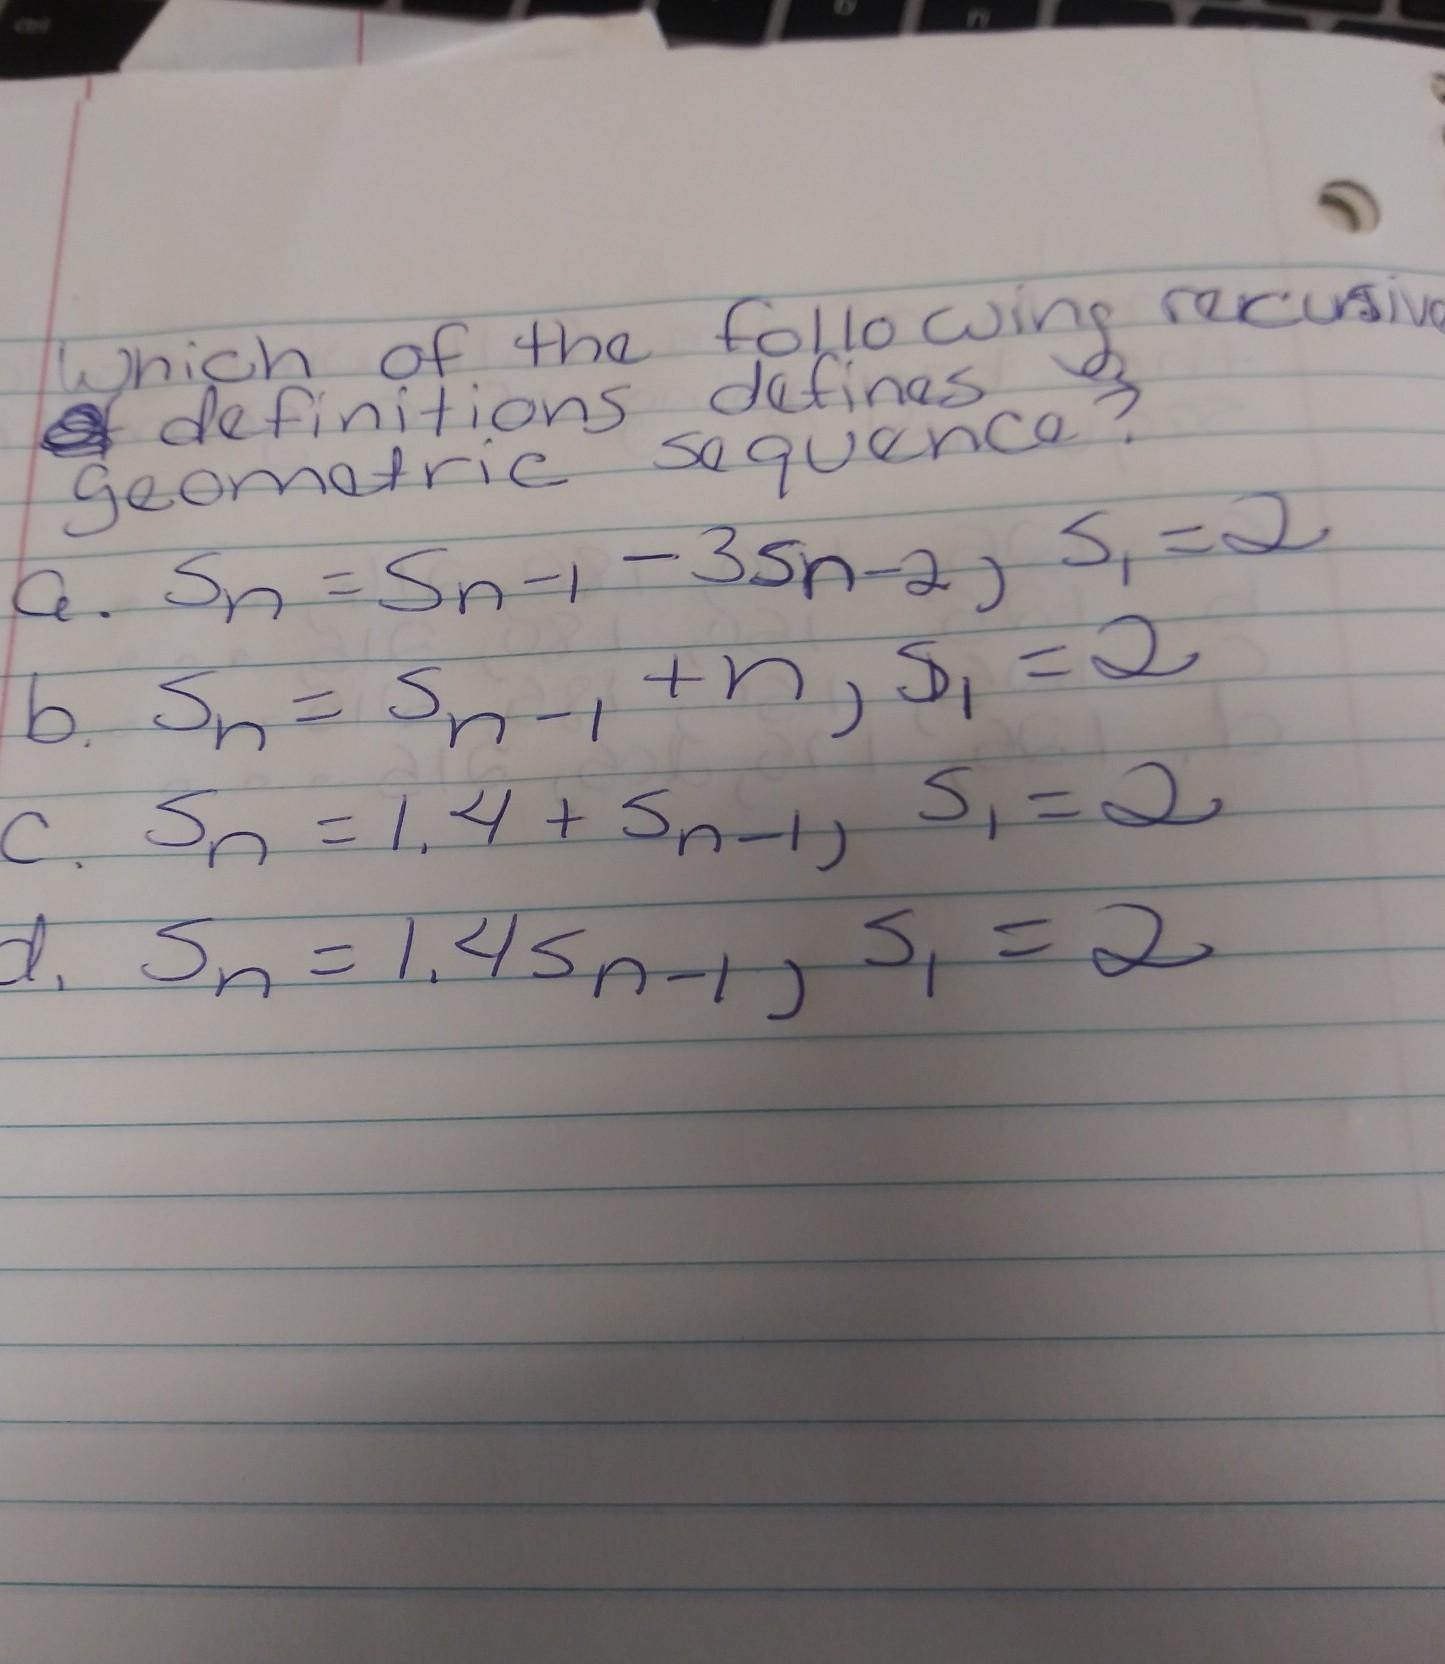 Which of the following recursive
definitions defines a
geometric sequence?
a. Sn = Sn-1 - 3Sn-2, S1 = 2
b. Sn = Sn-1 + n, S1 = 2
c. Sn = 1.4 + Sn-1, S1 = 2
d. Sn = 1.4Sn-1, S1 = 2